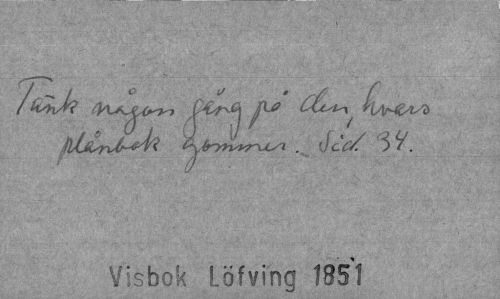 Tänk någon gång på den, hvars
plånbok gömmer. Sid. 34.
Visbok Löfving 1851